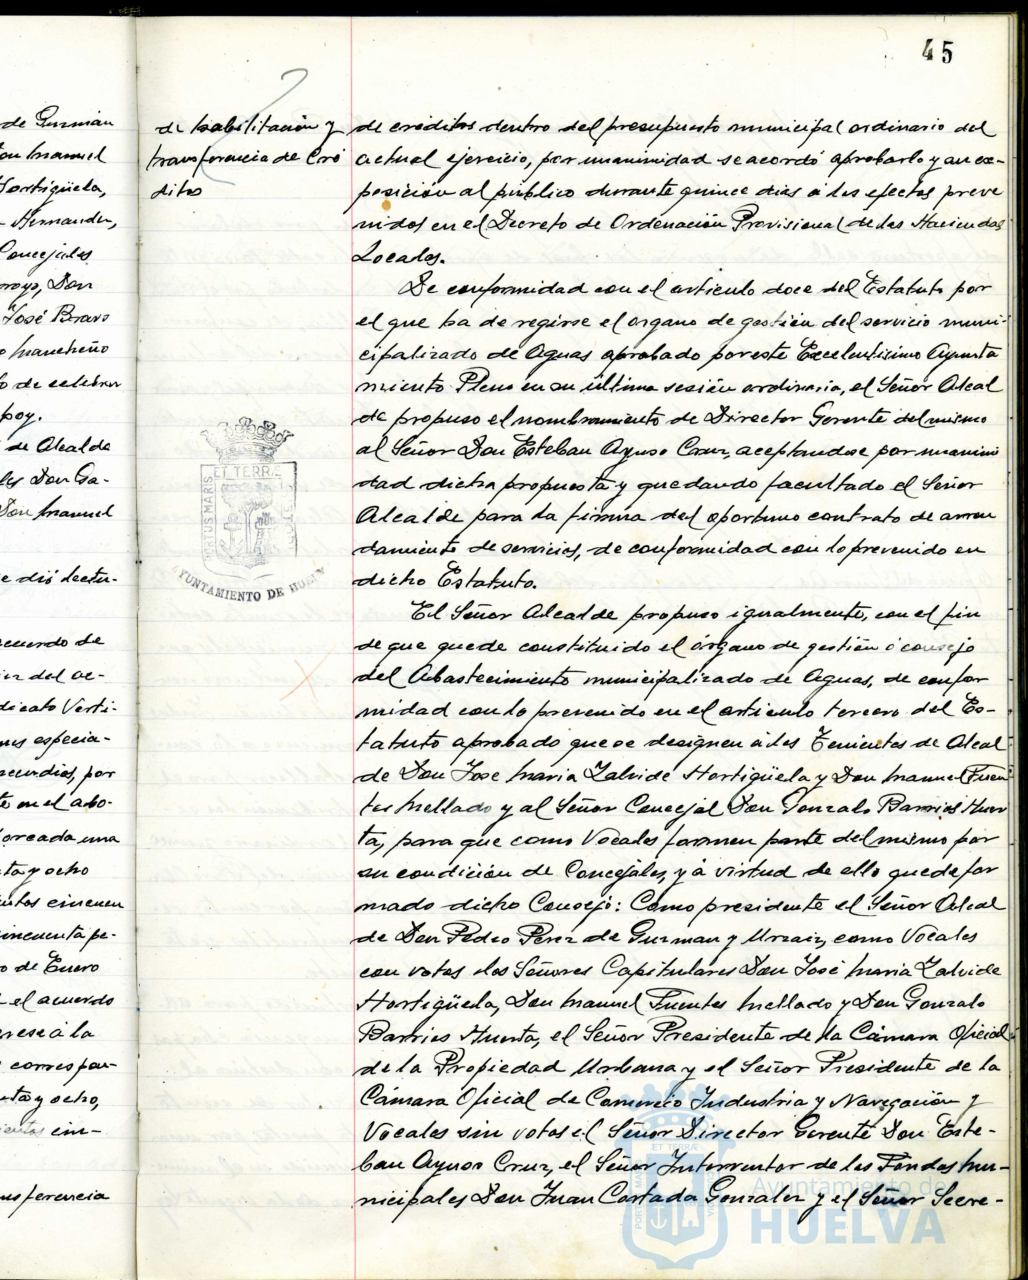 45
de Guzmán
Don Manuel
Hortigüela,
Hernandez,
Concejales
Don
José Bravo
Mancheño
de celebrar
hoy.
de Alcalde
les Don Ga-
Don Manuel
e dió lectu-
acuerdo de
del ac-
dicato Verti-
especia-
incendios, por
te en el abo-
una
ta y ocho
cincuen
cincuenta pe-
o de Enero
el acuerdo
ese á la
correspon-
ta y ocho,
cin-
nsferencia
de habilitación y
transferencia de Cré
ditos
de créditos dentro del presupuesto municipal ordinario del
actual ejercicio, por unanimidad se acordó aprobarlo y su ex-
posición al público durante quince dias á los efectos preve
nidos en el Decreto de Ordenación Provisional de las Haciendas
Locales.
De conformidad con el articulo doce del Estatuto por
el que ha de regirse el organo de gestión del servicio muni-
cipalizado de Aguas aprobado por este Excelentisimo Ayunta
miento Pleno en su última sesión ordinaria, el Señor Alcal
de propuso el nombramiento de Director Gerente del mismo
al Señor Don Esteban Ayuso Cruz, aceptandose por unanimi
dad dicha propuesta y quedando facultado el Señor
Alcalde para la firma del oportuno contrato de arren
damiento de servicios, de conformidad con lo prevenido en
dicho Estatuto.
El Señor Alcalde propuso igualmente, con el fin
de que quede constituido el órgano de gestión ó consejo
del Abastecimiento municipalizado de Aguas, de confor
midad con lo prevenido en el articulo tercero del Es-
tatuto aprobado que se designen á los Tenientes de Alcal
de Don Jose Maria Zalvide Hortigüela y Don Manuel Fuen
tes Mellado y al Señor Concejal Don Gonzalo Barrios Huer
ta, para que como Vocales formen parte del mismo por
su condición de Concejales, y á virtud de ello quede for
mado dicho Consejo: Como presidente el Señor Alcal
de Don Pedro Perez de Guzman y Urzaiz, como Vocales
con votos los Señores Capitulares Don José Maria Zalvide
Hortigüela, Don Manuel Fuentes Mellado y Don Gonzalo
Barrios Huerta, el Señor Presidente de la Cámara Oficial
de la Propiedad Urbana y el Señor Presidente de la
Cámara Oficial de Comercio Industria y Navegación y
Vocales sin votos el Señor Director Gerente Don Este-
ban Ayuso Cruz, el Señor Interventor de los Fondos Mu-
nicipales Don Juan Cortada Gonzalez y el Señor Secre-
ET TERRÆ
PORTUS MARIS
AYUNTAMIENTO DE HUELVA
Ayuntamiento de
HUELVA